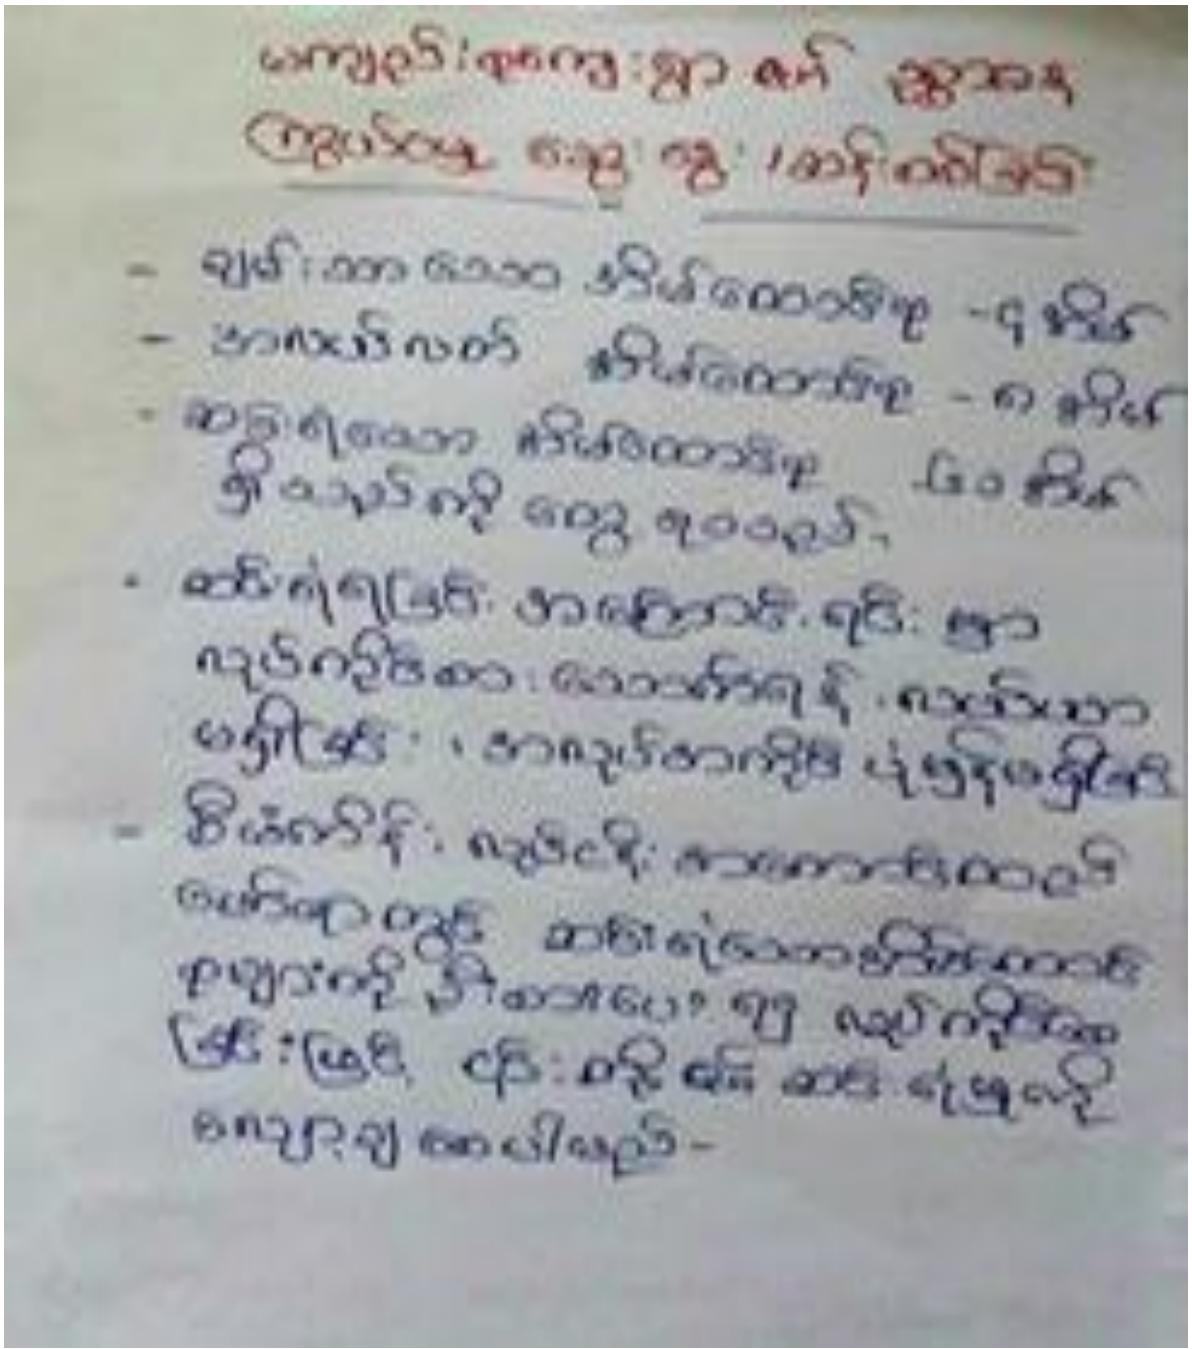 မကျည်းစုကျေးရွာ ဇုတ် ညွှသာန
ကြွယ်ဝမှု ဆွေးနွေး၊ဆန်းစစ်ခြင်း
- ချမ်းသာသော အိမ်ထောင်စု - ၄ အိမ်
- အလယ်လတ် အိမ်ထောင်စု - ၈ အိမ်
- ဆင်းရဲသော အိမ်ထောင်စု အိမ်
ရှိသည်ကို တွေ့ရသည်၊
- ဆင်းရဲရခြင်း အကြောင်းရင်းမှာ
လုပ်ကိုင်စားသောက်ရန် လယ်ယာ
မရှိခြင်း ၊ အလုပ်အကိုင် ပုံမှန်မရှိခြင်း
- စီမံကိန်း လုပ်ငန်း အကောင်အထည်
ဖော်ရာတွင် ဆင်းရဲသောအိမ်ထောင်
စုများကို ဦးစားပေး၍ လုပ်ကိုင်စေ
ခြင်းဖြင့် ၎င်းတို့၏ ဆင်းရဲမှုကို
လျှော့ချစေပါမည် -